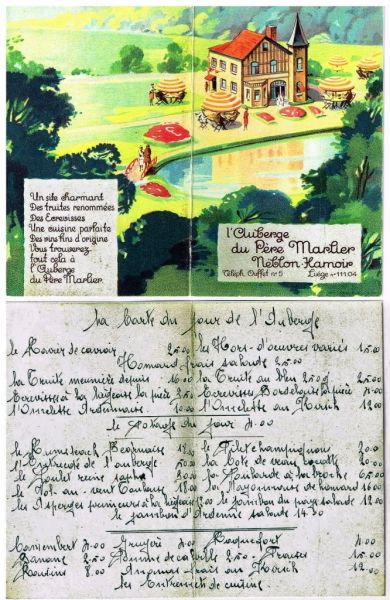 Un site charmant
Des truites renommées
Des Ecrevisses
Une cuisine parfaite
Des vins fins d'origine
Vous trouverez
tout cela à
l'Auberge
du Père Marlier.
l'Auberge
du Père Marlier
Néblon-Hamoir
Téléph. Ouffet n° 5 Liège n° 111.04
La Carte du jour de l'Auberge
le Ravier de caviar 25.00 les Hors-d'œuvres variés 15.00
Homard frais salade 25.00
la Truite meunière depuis 16.00 la Truite au bleu
Ecrevisses à la liégeoise la pièce Ecrevisses Bordelaise la pièce
l'Omelette Ardennaise 10.00 l'Omelette au Kirsch 12.00
le Potage du jour
le Rumsteack Béarnaise le Filet champignons
l'Entrecôte de l'auberge la Côte de veau
le Poulet reine la Poularde à la broche
le Vol-au-vent Toulouse la Mayonnaise de homard
les Asperges le jambon du pays salade 12.00
le jambon d'Ardenne salade 14.50
Camembert Gruyère Roquefort
Banane 2.50 Pomme 2.50 Fraises 15.00
Boudins 8.00 Ananas frais au Kirsch 12.00
les Entremets de cuisine